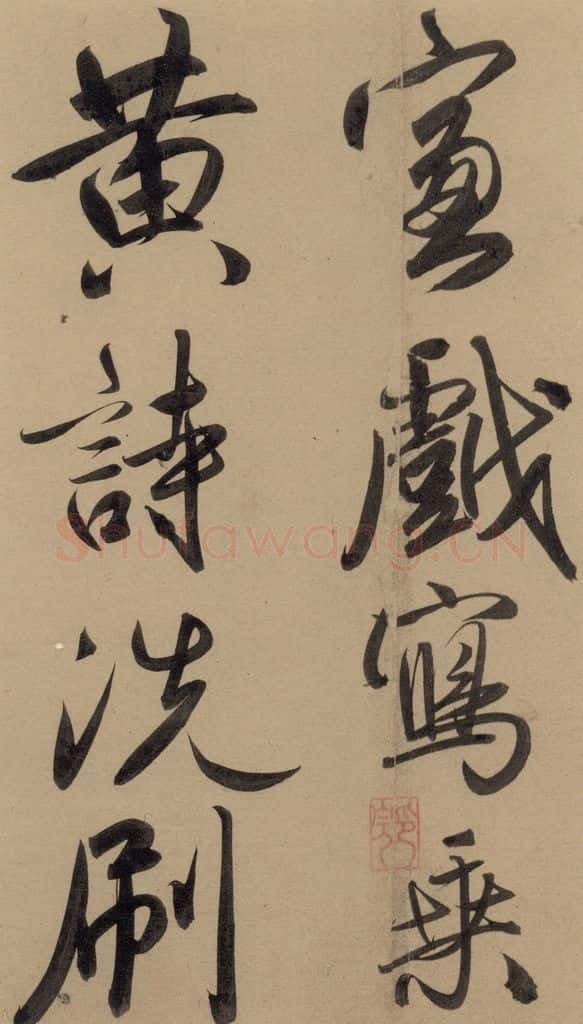 宣戲寫乗
黄詩洗刷
Shufawang.CN